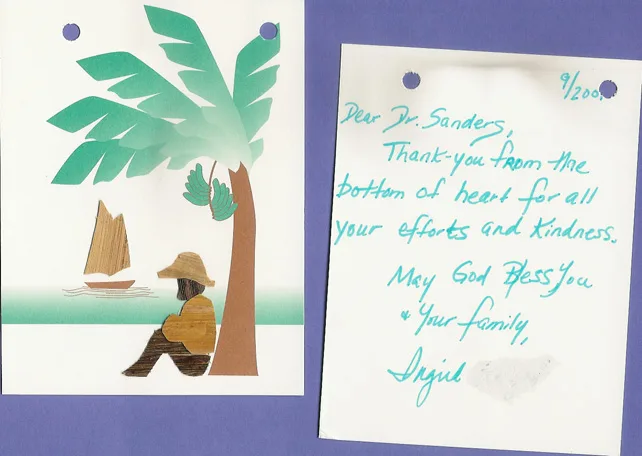 9/200
Dear Dr. Sanders,
Thank-you from the
bottom of heart for all
your efforts and kindness.
May God Bless You
& Your family,
Ingrid